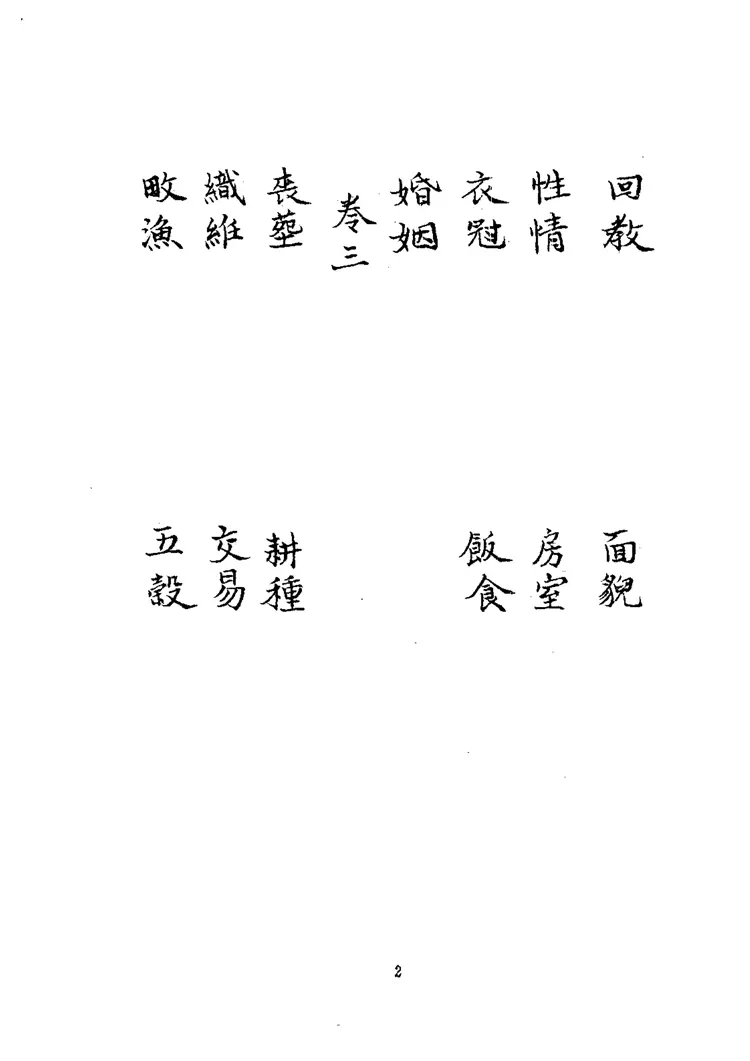 回教　面貌
性情　房室
衣冠　飯食
婚姻
卷三
喪葬　耕種
織絍　交易
畋漁　五穀
2